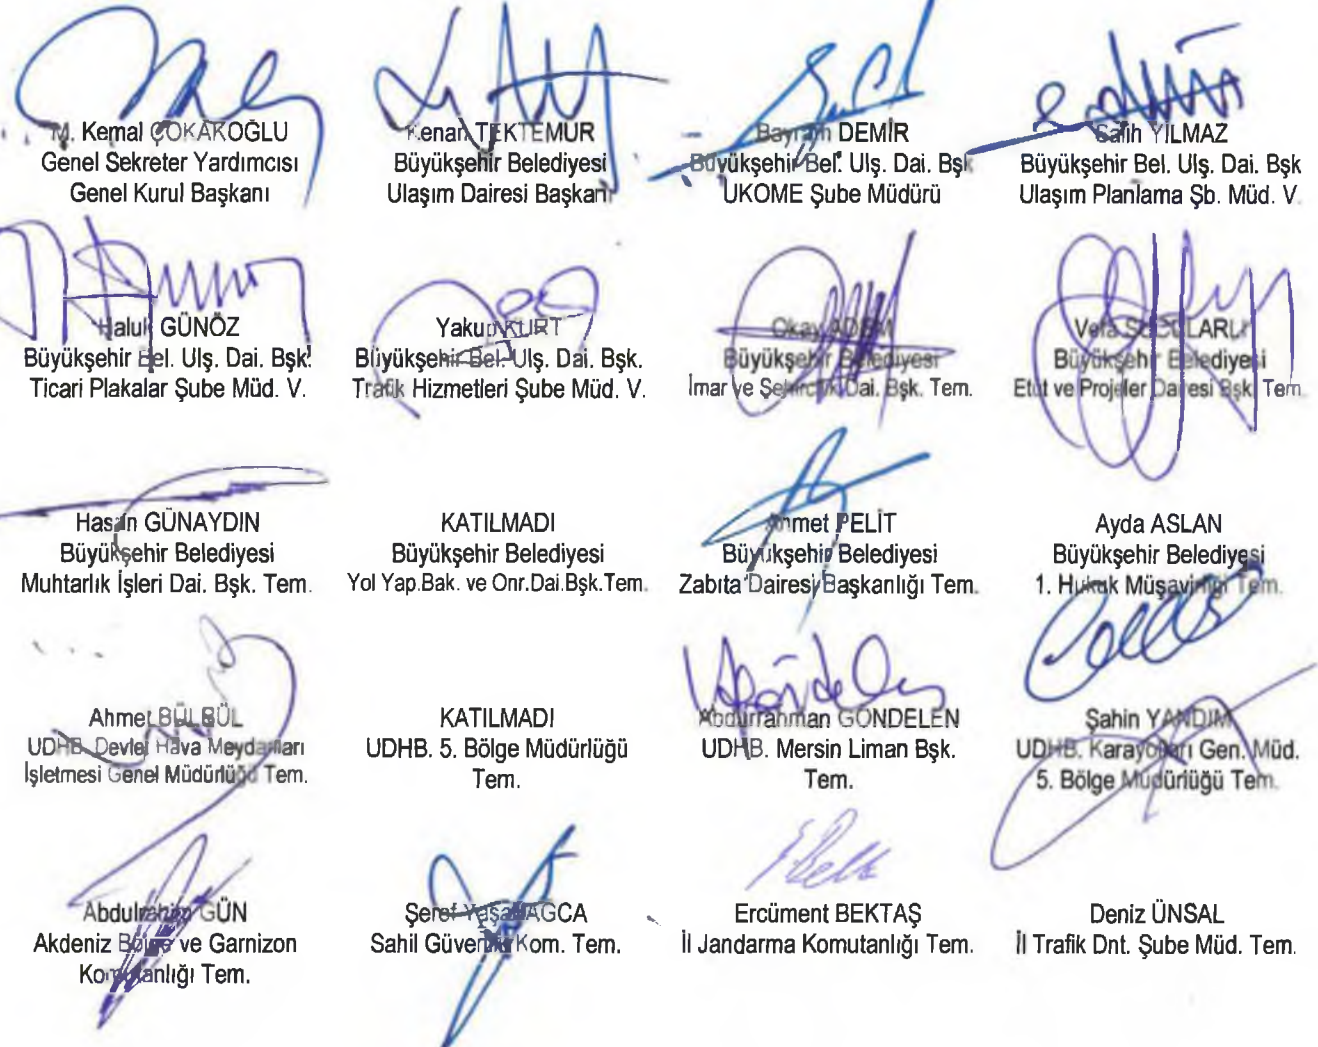 M. Kemal ÇOKAKOĞLU
Genel Sekreter Yardımcısı
Genel Kurul Başkanı
Kenan TEKTEMUR
Büyükşehir Belediyesi
Ulaşım Dairesi Başkanı
Bayram DEMİR
Büyükşehir Bel. Ulş. Dai. Bşk
UKOME Şube Müdürü
Salih YILMAZ
Büyükşehir Bel. Ulş. Dai. Bşk
Ulaşım Planlama Şb. Müd. V.
Haluk GÜNÖZ
Büyükşehir Bel. Ulş. Dai. Bşk.
Ticari Plakalar Şube Müd. V.
Yakup KURT
Büyükşehir Bel. Ulş. Dai. Bşk.
Trafik Hizmetleri Şube Müd. V.
Okay ADEM
Büyükşehir Belediyesi
İmar ve Şehircilik Dai. Bşk. Tem.
Vefa
Büyükşehir Belediyesi
Etüt ve Projeler Dairesi Bşk. Tem.
Hasan GÜNAYDIN
Büyükşehir Belediyesi
Muhtarlık İşleri Dai. Bşk. Tem.
KATILMADI
Büyükşehir Belediyesi
Yol Yap.Bak. ve Onr.Dai.Bşk.Tem.
Ahmet PELİT
Büyükşehir Belediyesi
Zabıta Dairesi Başkanlığı Tem.
Ayda ASLAN
Büyükşehir Belediyesi
1. Hukuk Müşavirliği Tem.
Ahmet BÜLBÜL
UDHB. Devlet Hava Meydanları
İşletmesi Genel Müdürlüğü Tem.
KATILMADI
UDHB. 5. Bölge Müdürlüğü
Tem.
Abdurrahman GÖNDELEN
UDHB. Mersin Liman Bşk.
Tem.
Şahin YANDIM
UDHB. Karayolları Gen. Müd.
5. Bölge Müdürlüğü Tem.
Abdulrahim GÜN
Akdeniz Bölge ve Garnizon
Komutanlığı Tem.
Şeref Yaşar AGCA
Sahil Güvenlik Kom. Tem.
Ercüment BEKTAŞ
İl Jandarma Komutanlığı Tem.
Deniz ÜNSAL
İl Trafik Dnt. Şube Müd. Tem.